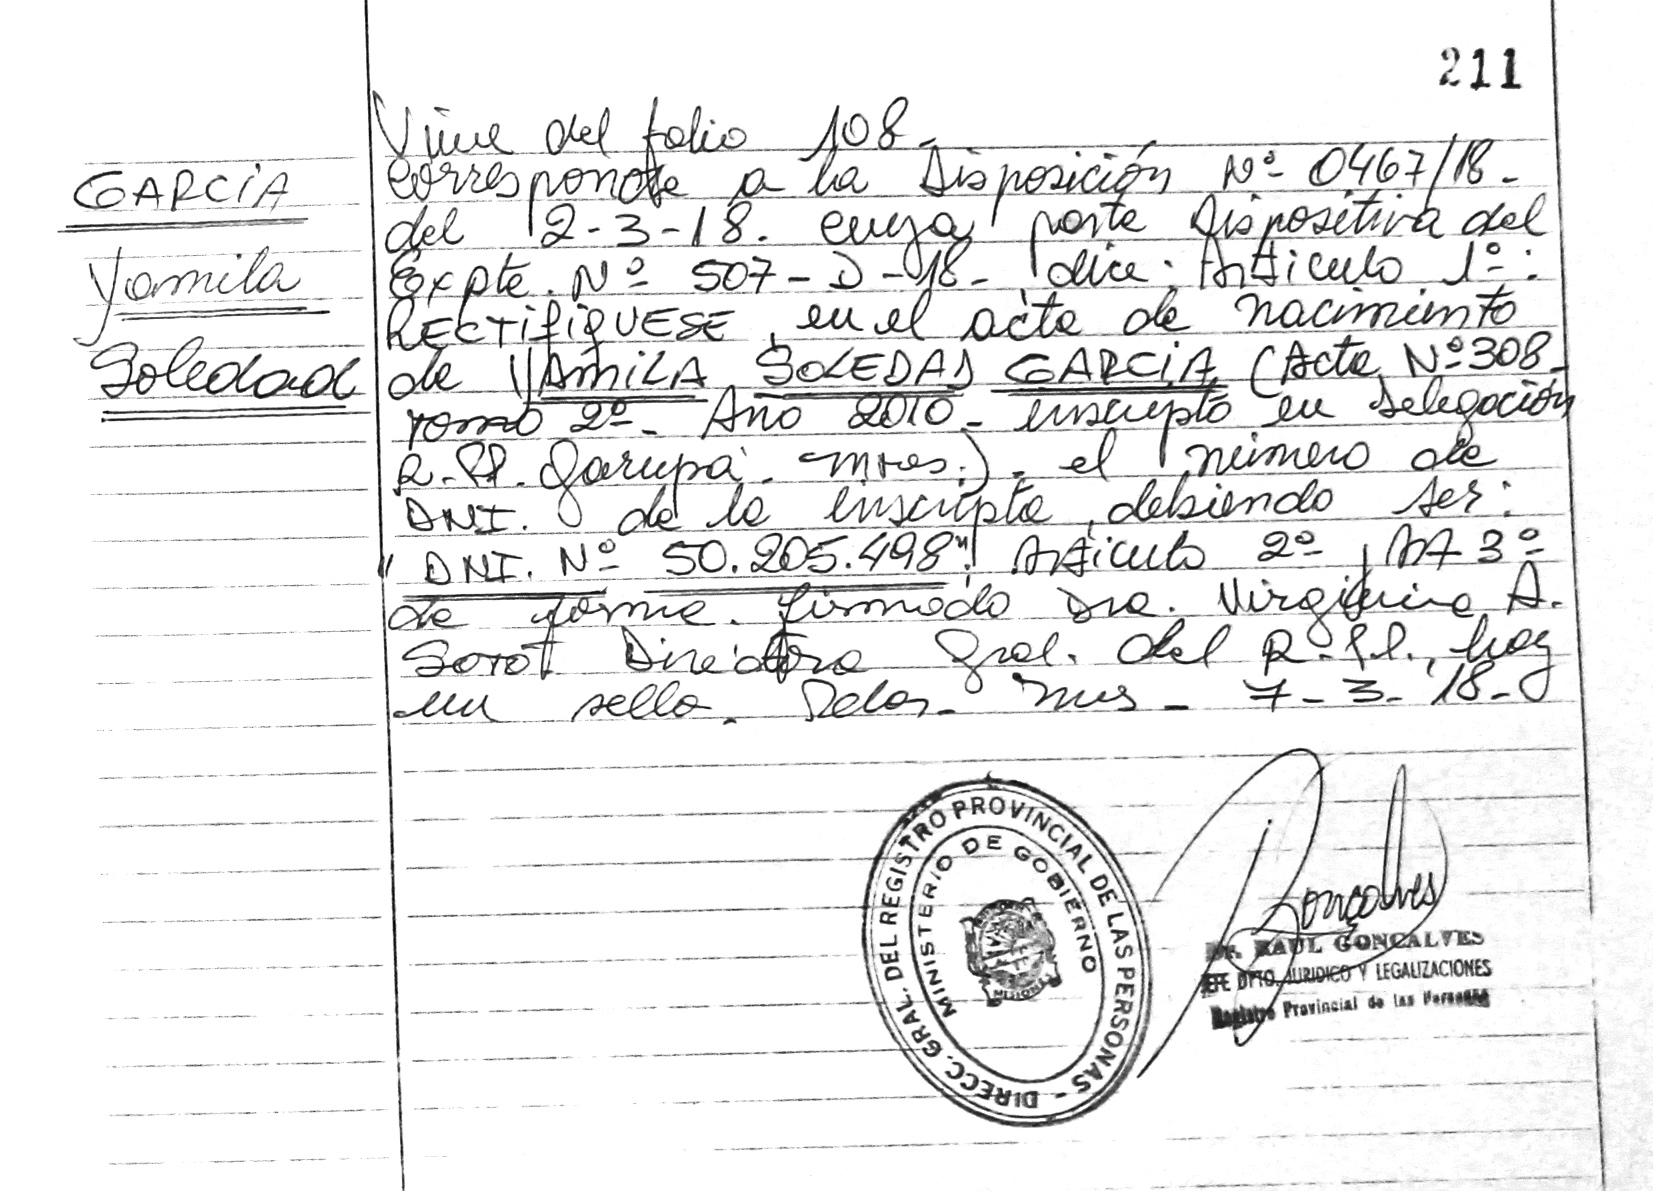 211
GARCIA
Yamila
Soledad
Viene del folio 108-
corresponde a la Disposición Nº 0467/18-
del 2-3-18. cuya parte Dispositiva del
Expte. Nº 507-D-18-, dice: Artículo 1º:
RECTIFIQUESE, en el acta de nacimiento
de YAMILA SOLEDAD GARCIA (Acta Nº 308-
Tomo 2º- Año 2010- inscripto en Delegación
R.PP. Garupá- Mnes.), el número de
DNI. de la inscripta, debiendo ser:
"DNI. Nº 50.205.498". Artículo 2º, Art 3º
de forma. firmado Dra. Virginia A.
Directora Gral. del R.PP., hay
un sello. Pdas- Mnes- 7-3-18-
DIRECC. GRAL. DEL REGISTRO PROVINCIAL DE LAS PERSONAS -
MINISTERIO DE GOBIERNO
MISIONES
Gonçalves
Dr. RAUL GONCALVES
JEFE DPTO. JURIDICO Y LEGALIZACIONES
Registro Provincial de las Personas